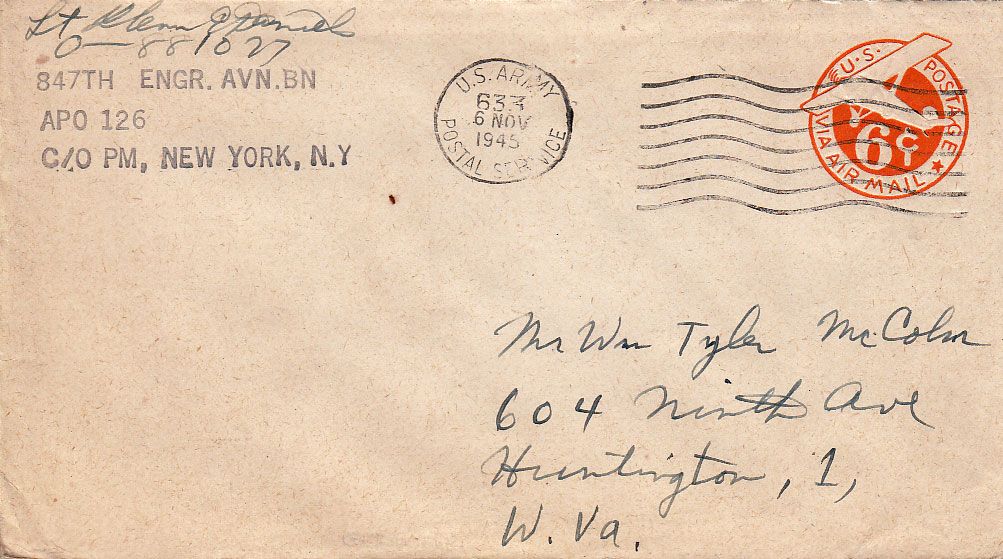 Lt Glenn E Daniels
O-881027
847TH ENGR. AVN. BN
APO 126
C/O PM, NEW YORK, N.Y
U.S. ARMY
633
6 NOV
1945
POSTAL SERVICE
U·S· POSTAGE
6¢
VIA AIR MAIL
Mr Wm Tyler McColm
604 Ninth Ave
Huntington, 1,
W. Va.